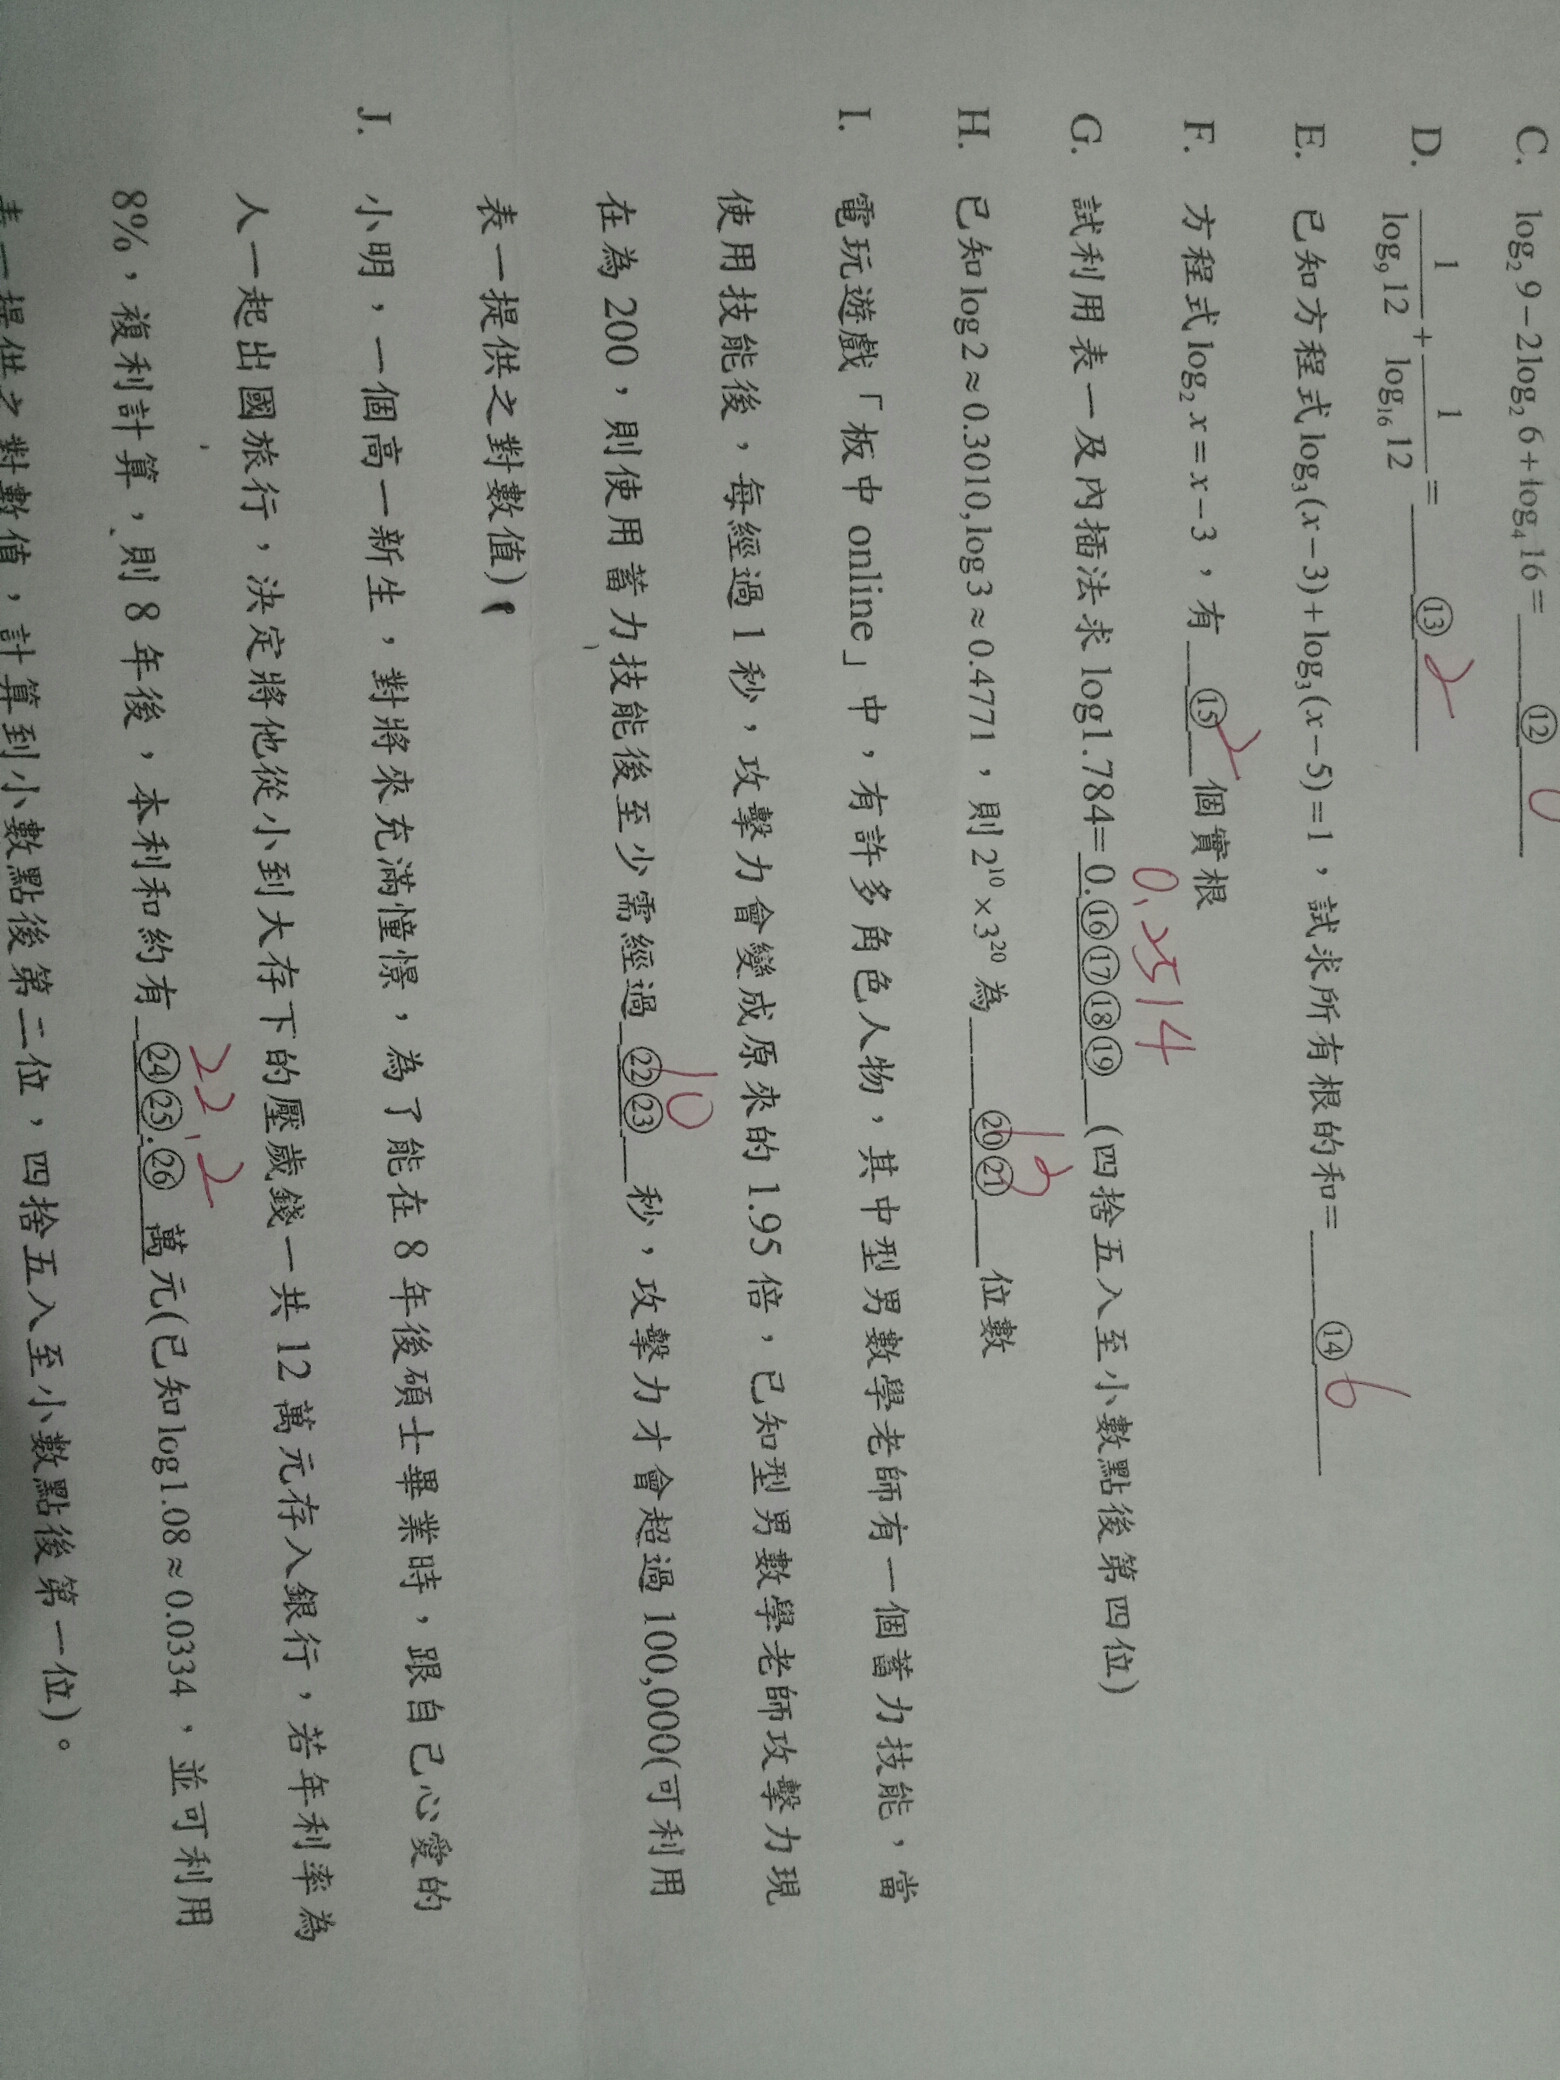 C. log₂ 9 − 2log₂ 6 + log₄ 16 = ⑫ 0
D. 1/log₉ 12 + 1/log₁₆ 12 = ⑬ 2
E. 已知方程式 log₃(x−3)+log₃(x−5)=1，試求所有根的和= ⑭ 6
F. 方程式 log₂ x = x−3，有 ⑮ 2 個實根
G. 試利用表一及內插法求 log1.784= 0.⑯⑰⑱⑲ 0.2514 (四捨五入至小數點後第四位)
H. 已知 log2≈0.3010,log3≈0.4771，則 2¹⁰×3²⁰ 為 ⑳㉑ 13 位數
I. 電玩遊戲「板中 online」中，有許多角色人物，其中型男數學老師有一個蓄力技能，當
使用技能後，每經過 1 秒，攻擊力會變成原來的 1.95 倍，已知型男數學老師攻擊力現
在為 200，則使用蓄力技能後至少需經過 ㉒㉓ 10 秒，攻擊力才會超過 100,000(可利用
表一提供之對數值)
J. 小明，一個高一新生，對將來充滿憧憬，為了能在 8 年後碩士畢業時，跟自己心愛的
人一起出國旅行，決定將他從小到大存下的壓歲錢一共 12 萬元存入銀行，若年利率為
8%，複利計算，則 8 年後，本利和約有 ㉔㉕.㉖ 22.2 萬元(已知 log1.08≈0.0334，並可利用
表一提供之對數值，計算到小數點後第二位，四捨五入至小數點後第一位)。